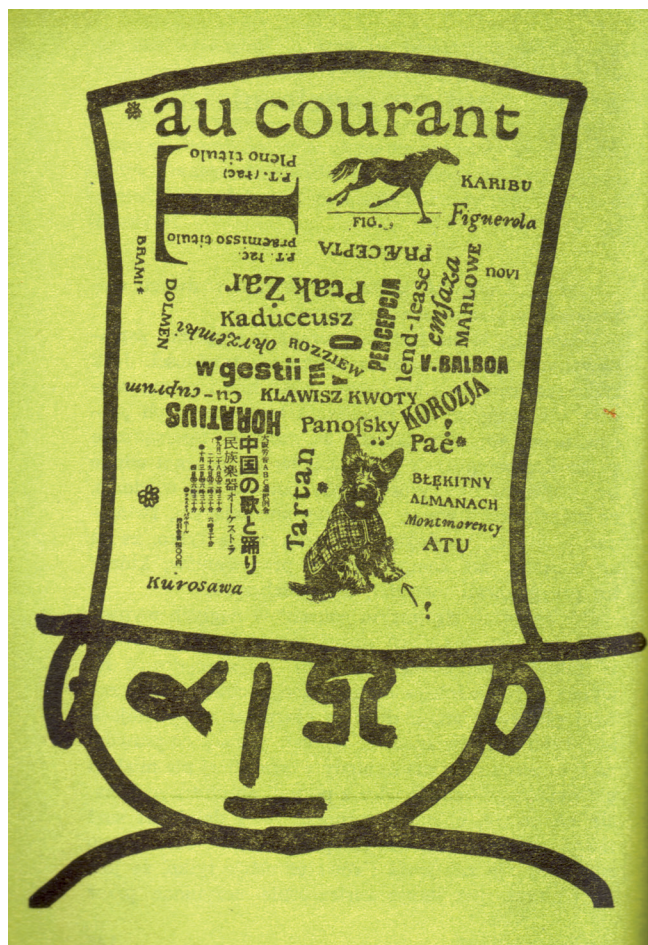 *au courant
T
Pleno titulo
P.T. (łac)
P.T. łac.
præmisso titulo
FIG.
KARIBU
Figuerola
PRÆCEPTA
BRAMI*
DOLMEN
Ptak Żar
Kaduceusz
okrzemki
ROZZIEW
PERCEPCJA
lend-lease
emfaza
MARLOWE
NOVI
w gestii
V. BALBOA
Cu-cuprum
KLAWISZ KWOTY
HORATIUS
Panofsky
KOROZJA
Paé*
中国の歌と踊り
民族楽器オーケストラ
Tartan
*
BŁĘKITNY
ALMANACH
Montmorency
ATU
Kurosawa
!